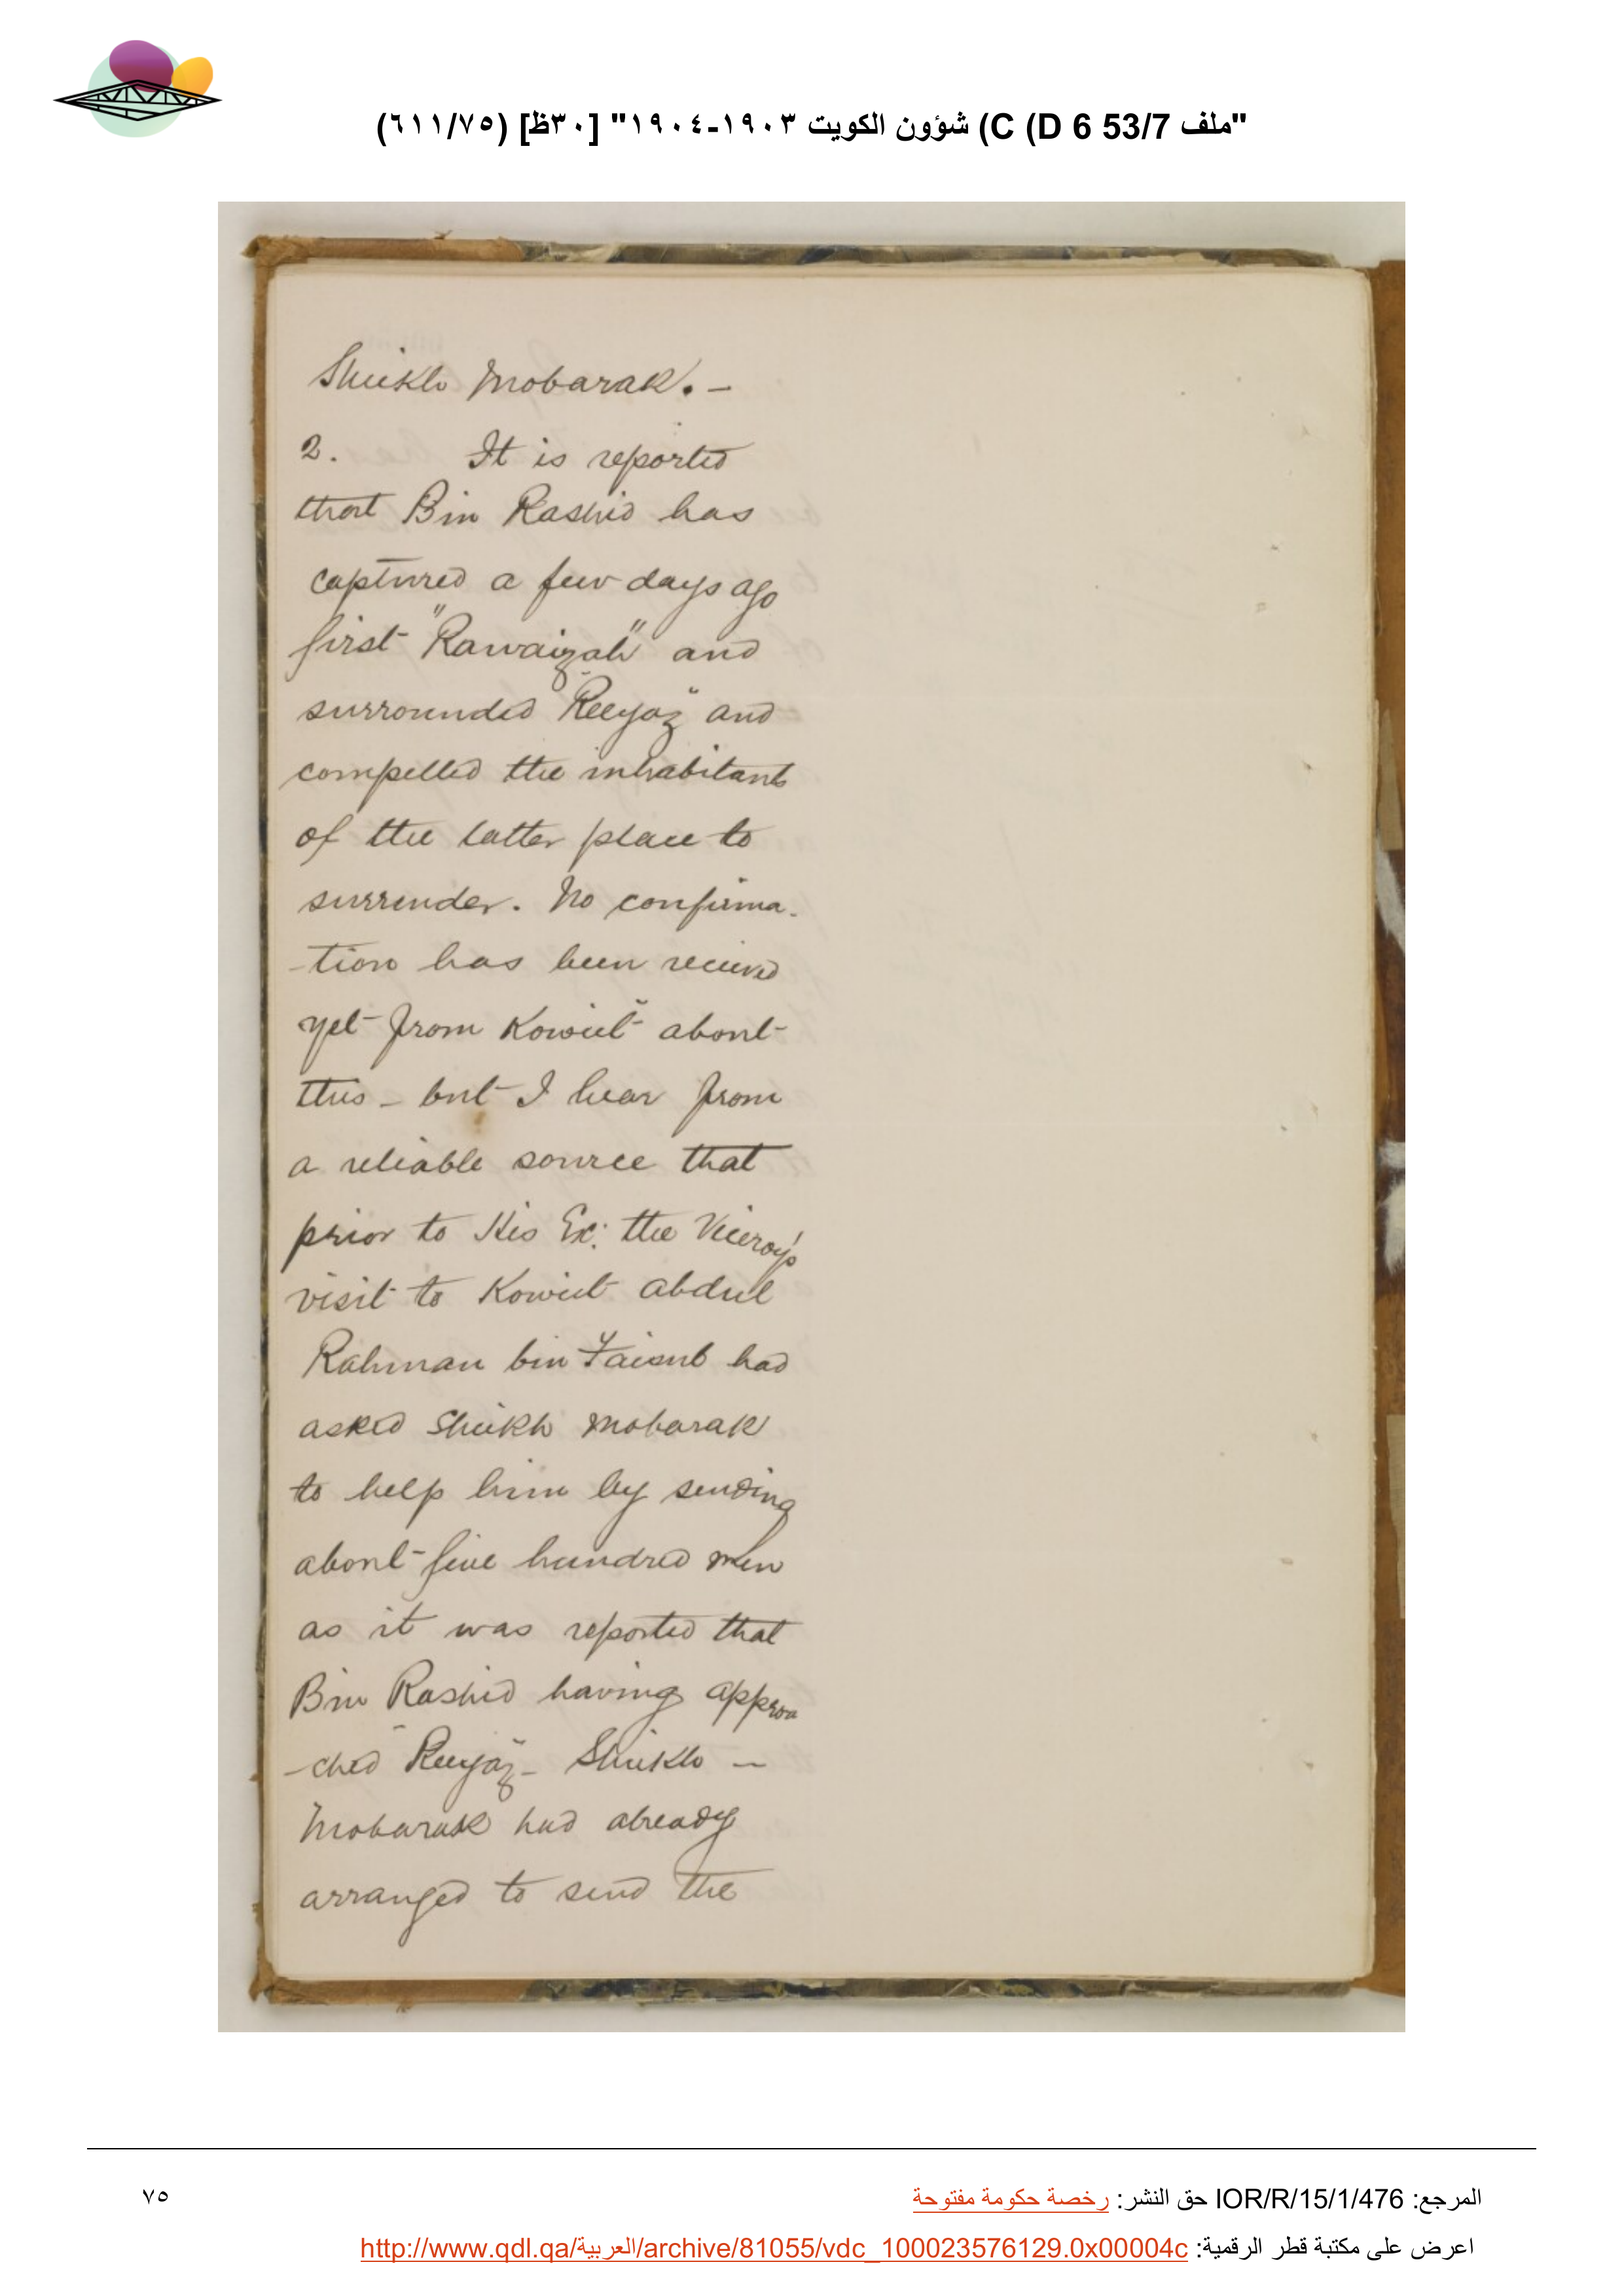 "ملف 53/7 C (D 6) شؤون الكويت ١٩٠٣-١٩٠٤" [٣٠ظ] (٦١١/٧٥)
Sheikh Mobarak. -
2. It is reported
that Bin Rashid has
captured a few days ago
first "Rawaizah" and
surrounded "Reeyaz" and
compelled the inhabitants
of the latter place to
surrender. No confirma-
-tion has been received
yet from Koweit about
this - but I hear from
a reliable source that
prior to His Ex: the Viceroy's
visit to Koweit Abdul
Rahman bin Faisul had
asked Sheikh Mobarak
to help him by sending
about five hundred men
as it was reported that
Bin Rashid having approa
-ched "Reeyaz" - Sheikh -
Mobarak had already
arranged to send the
المرجع: IOR/R/15/1/476 حق النشر: رخصة حكومة مفتوحة
٧٥
اعرض على مكتبة قطر الرقمية: http://www.qdl.qa/العربية/archive/81055/vdc_100023576129.0x00004c